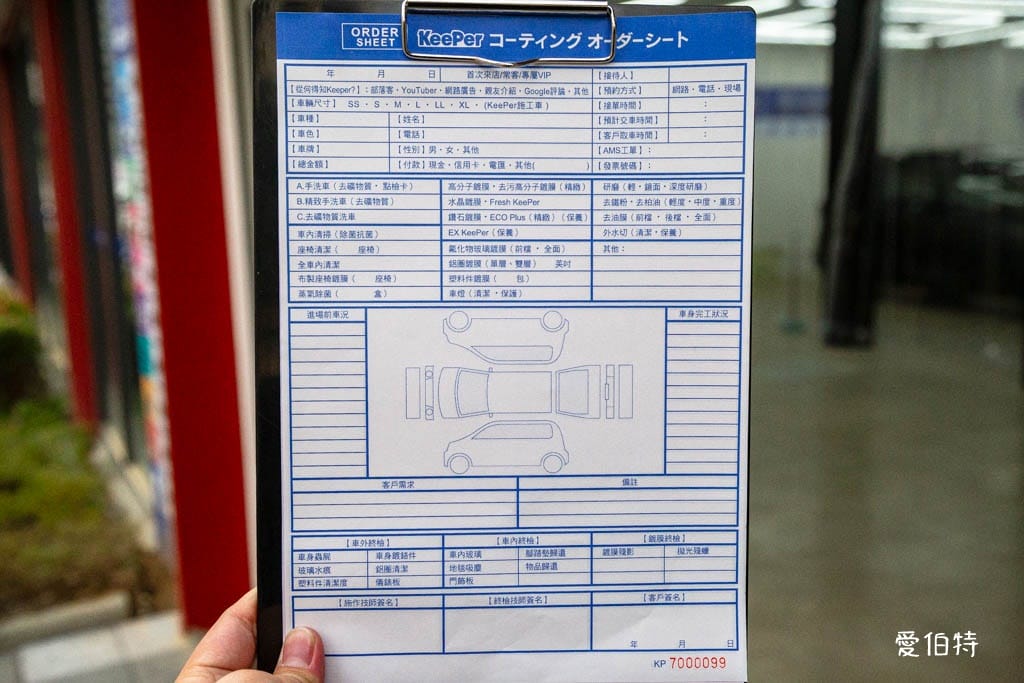 ORDER SHEET KeePer コーティング オーダーシート
年 月 日 首次來店/常客/專屬VIP 【接待人】
【從何得知Keeper?】:部落客・YouTuber・網路廣告・親友介紹・Google評論・其他 【預約方式】 網路・電話・現場
【車輛尺寸】 SS・S・M・L・LL・XL・(KeePer施工車) 【接單時間】 :
【車種】 【姓名】 【預計交車時間】 :
【車色】 【電話】 【客戶取車時間】 :
【車牌】 【性別】男・女・其他 【AMS工單】:
【總金額】 【付款】現金・信用卡・電匯・其他( ) 【發票號碼】:
A.手洗車(去礦物質・點檢卡) 高分子鍍膜・去污高分子鍍膜(精緻) 研磨(輕・鏡面・深度研磨)
B.精致手洗車(去礦物質) 水晶鍍膜・Fresh KeePer 去鐵粉・去柏油(輕度・中度・重度)
C.去礦物質洗車 鑽石鍍膜・ECO Plus(精緻)(保養) 去油膜(前檔・後檔・全面)
車內清掃(除菌抗菌) EX KeePer(保養) 外水切(清潔・保養)
座椅清潔( 座椅) 氟化物玻璃鍍膜(前檔・全面) 其他:
全車內清潔 鋁圈鍍膜(單層、雙層) 英吋
布製座椅鍍膜( 座椅) 塑料件鍍膜( 包)
蒸氣除菌( 盒) 車燈(清潔・保護)
進場前車況 車身完工狀況
客戶需求 備註
【車外終檢】 【車內終檢】 【鍍膜終檢】
車身蟲屍 車身鍍鉻件 車內玻璃 腳踏墊歸還 鍍膜殘影 拋光殘蠟
玻璃水痕 鋁圈清潔 地毯吸塵 物品歸還
塑料件清潔度 儀錶板 門飾板
【施作技師簽名】 【終檢技師簽名】 【客戶簽名】
年 月 日
KP 7000099
愛伯特